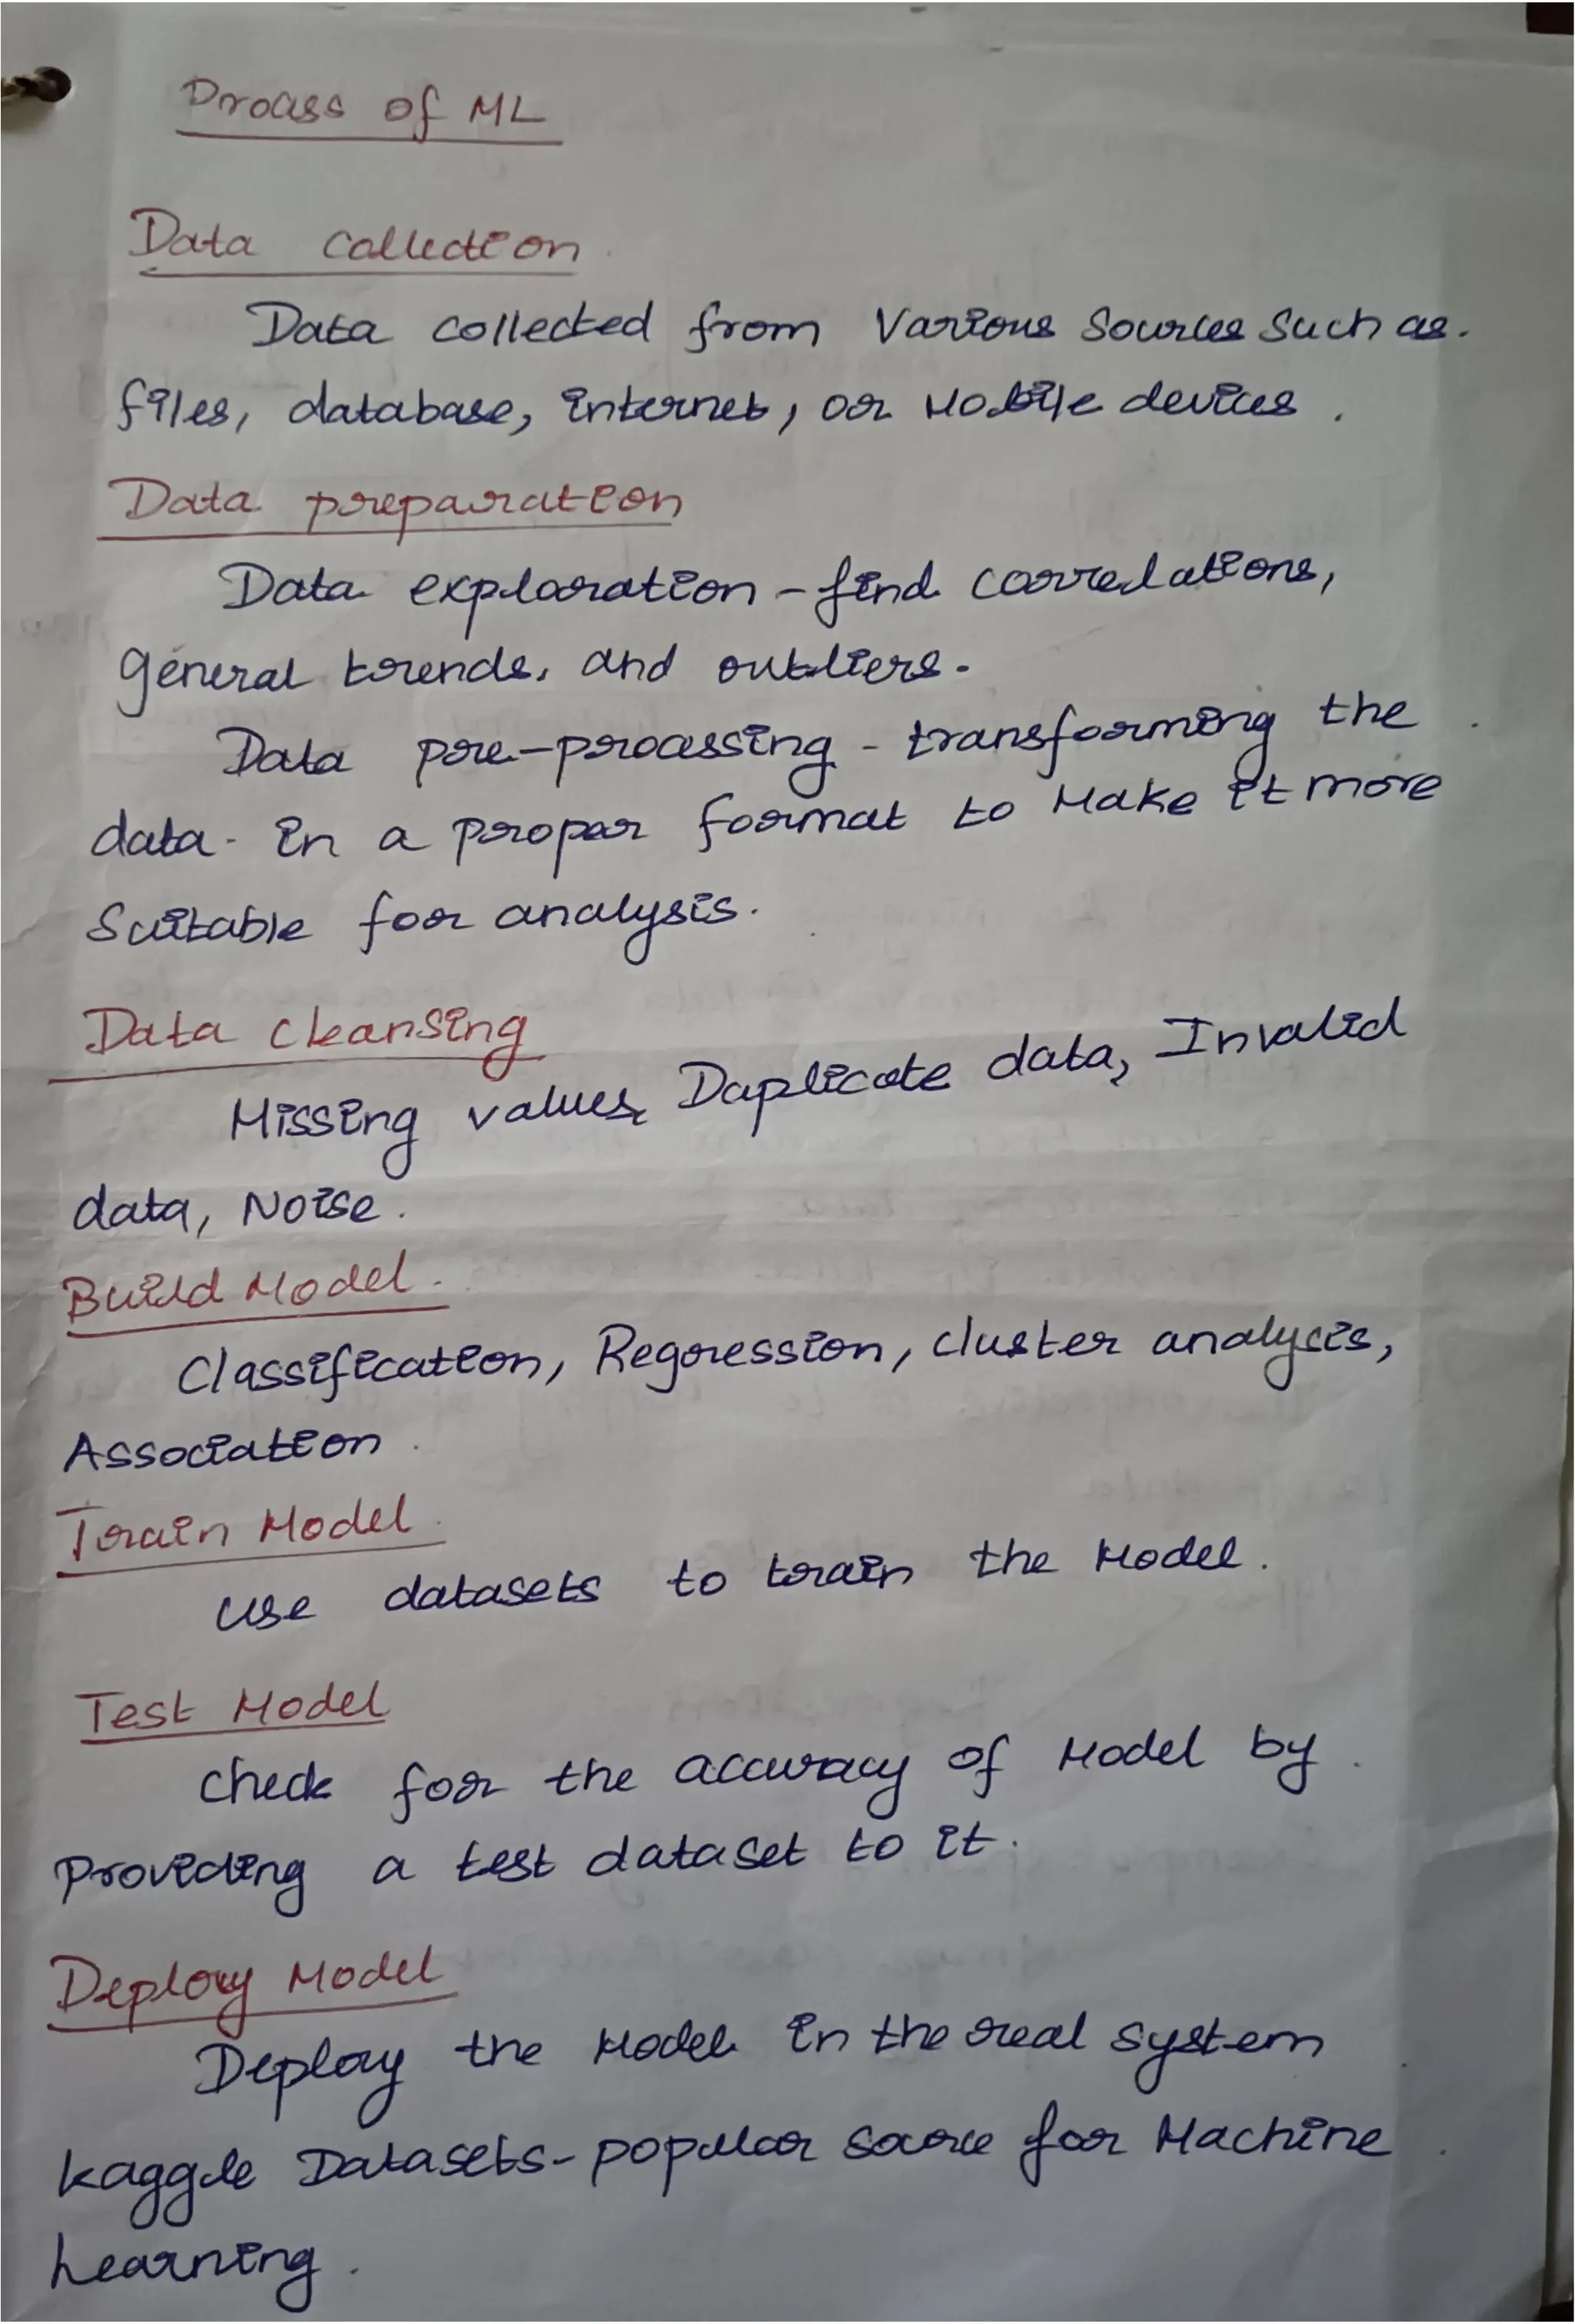 Process of ML
Data collection
Data collected from Various Sources Such as.
files, database, internet, or Mobile devices.
Data preparation
Data exploration - find correlations,
general trends, and outliers.
Data pre-processing - transforming the
data in a proper format to Make it more
Suitable for analysis.
Data Cleansing
Missing values, Duplicate data, Invalid
data, Noise.
Build Model.
Classification, Regression, cluster analysis,
Association.
Train Model.
Use datasets to train the Model.
Test Model
Check for the accuracy of Model by
Providing a test dataset to it.
Deploy Model
Deploy the Model in the real system
Kaggle Datasets - popular source for Machine
Learning.